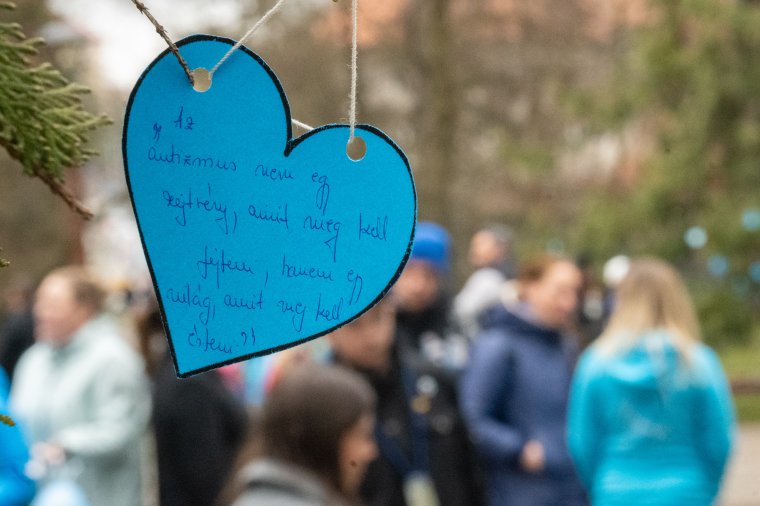 „Az
autizmus nem egy
rejtvény, amit meg kell
fejtem, hanem egy
világ, amit meg kell
értem"!